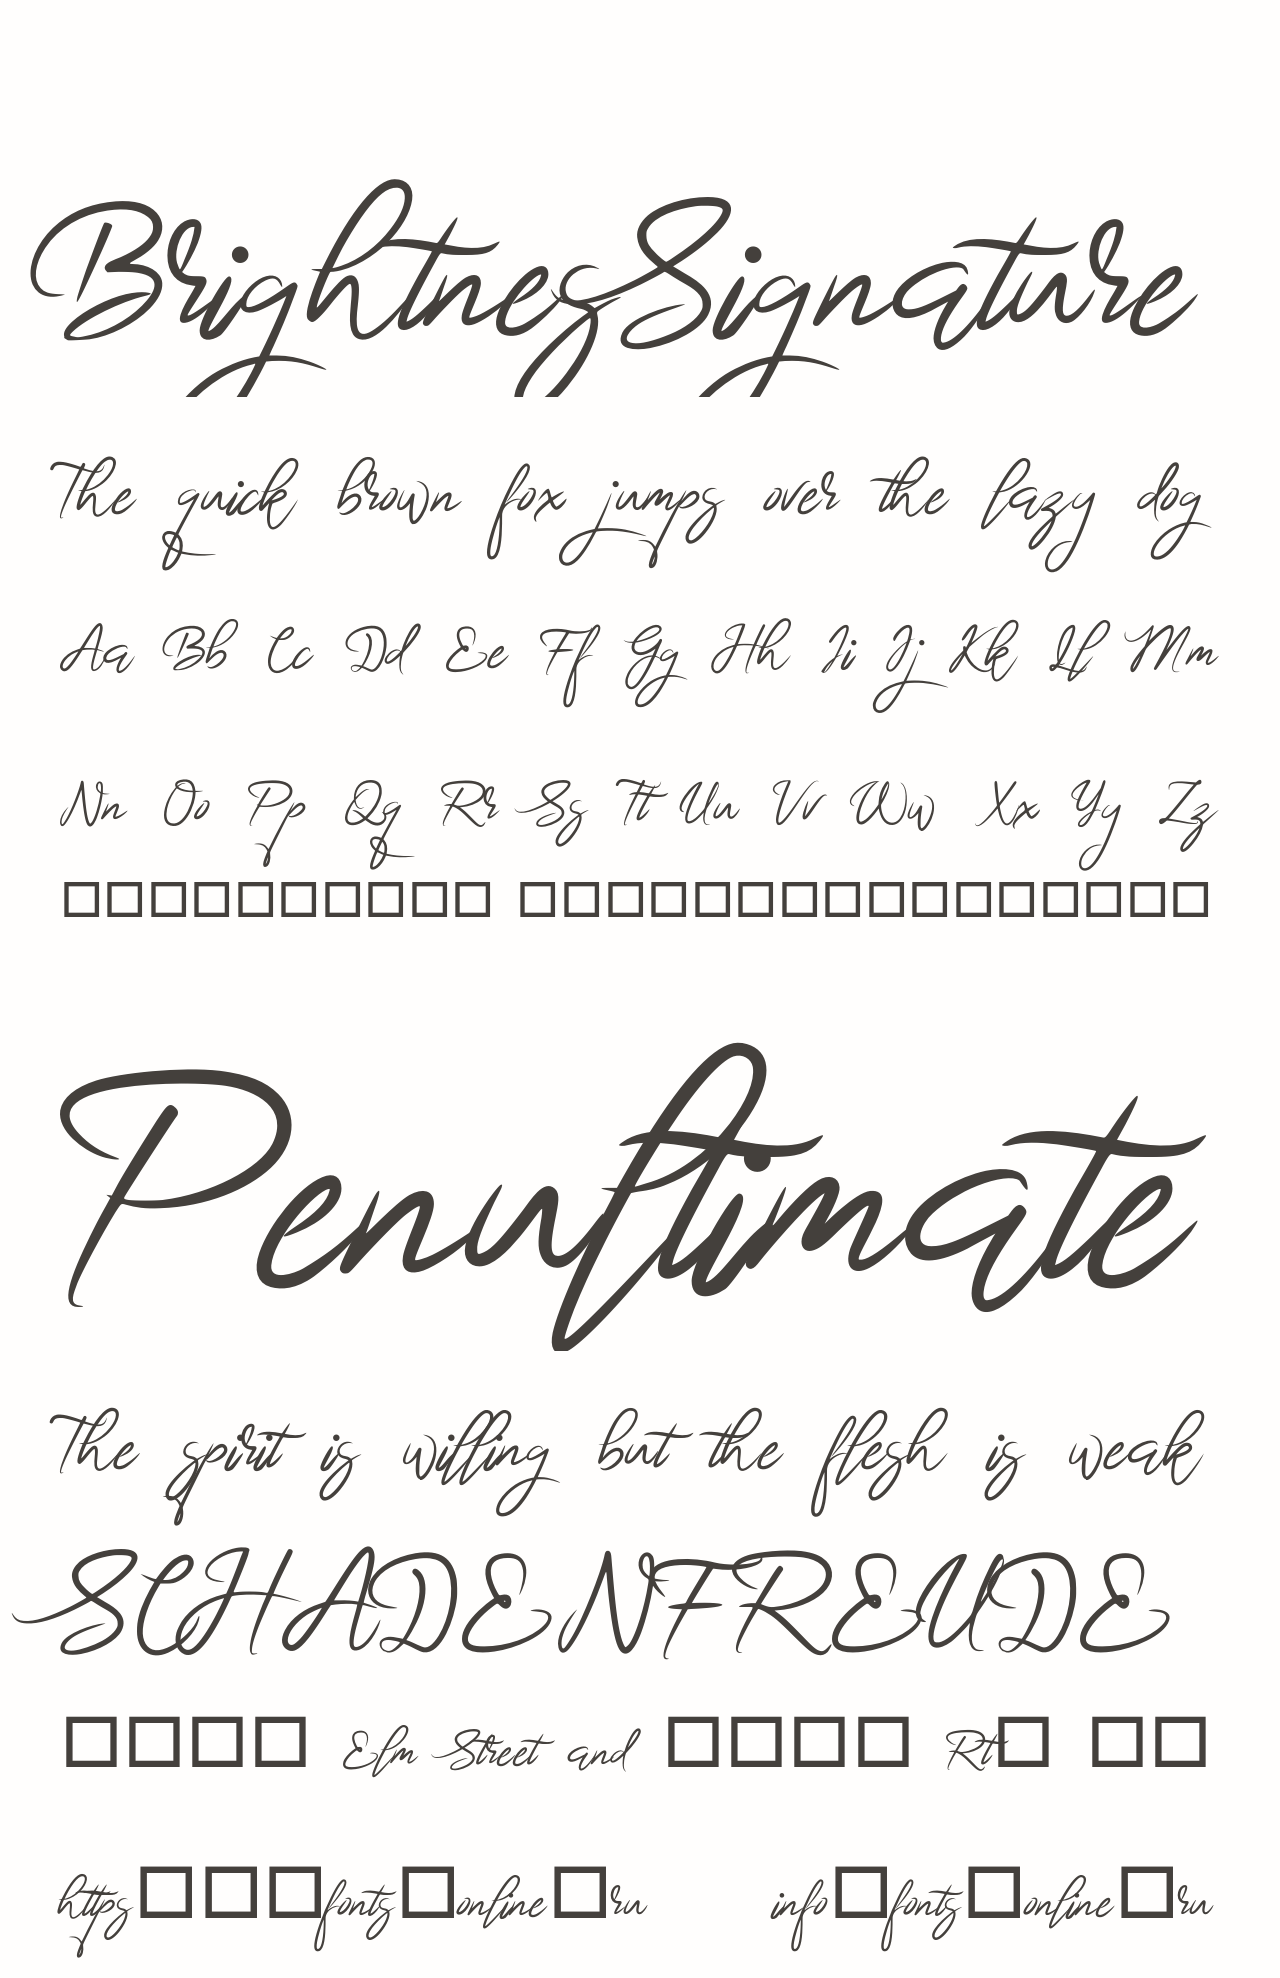 BrightnesSignature
The quick brown fox jumps over the lazy dog
Aa Bb Cc Dd Ee Ff Gg Hh Ii Jj Kk Ll Mm
Nn Oo Pp Qq Rr Ss Tt Uu Vv Ww Xx Yy Zz
□□□□□□□□□□ □□□□□□□□□□□□□□□□
Penultimate
The spirit is willing but the flesh is weak
SCHADENFREUDE
□□□□ Elm Street and □□□□ Rt□ □□
https□□□fonts□online□ru info□fonts□online□ru